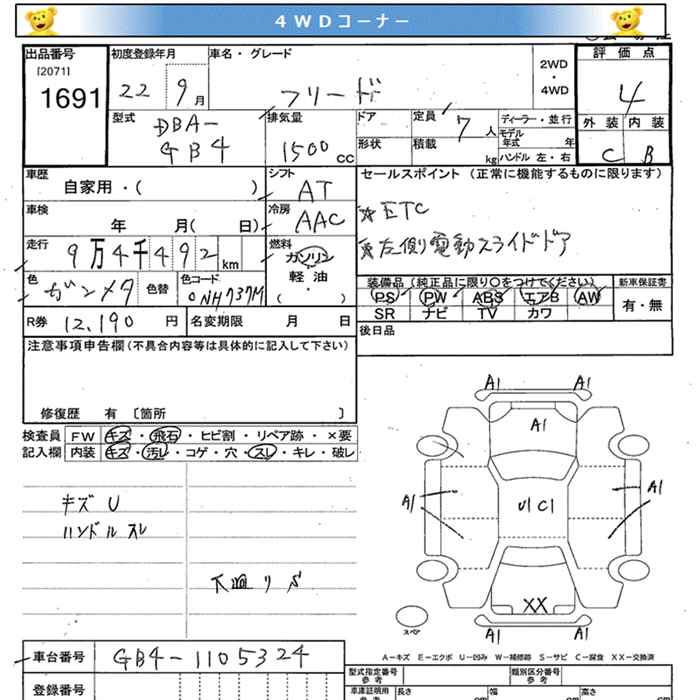 4WDコーナー
出品番号 初度登録年月 車名・グレード 評価点
[2071]
1691 22 9月 フリード 2WD・4WD 4
型式 DBA-GB4 排気量 1500 cc ドア 形状 定員 7人 積載 kg ディーラー・並行 モデル年式 年 ハンドル 左・右 外装 C 内装 B
車歴 自家用・( ) シフト AT セールスポイント(正常に機能するものに限ります)
車検 年 月( 日) 冷房 AAC ★ETC
走行 9万4千492km 燃料 ガソリン・軽油 ( ) ★左側電動スライドドア
色 ガンメタ 色替 色コード NH737M 装備品(純正品に限り○をつけてください) 新車保証書
PS PW ABS エアB AW 有・無
SR ナビ TV カワ
R券 12,190円 名変期限 月 日 後日品
注意事項申告欄(不具合内容等は具体的に記入して下さい)
修復歴 有 〔箇所 〕
検査員 FW キズ・飛石・ヒビ割・リペア跡・×要
記入欄 内装 キズ・汚レ・コゲ・穴・スレ・キレ・破レ
キズ U
ハンドルスレ
下廻り S
A1 A1
A1
A1 U1 C1 A1
XX
A1 A1
スペア
A−キズ E−エクボ U−凹み W−補修跡 S−サビ C−腐食 XX−交換済
車台番号 GB4-1105324
型式指定番号 参考 類別区分番号 参考
登録番号 車庫証明用 参考 長さ cm 幅 cm 高さ cm